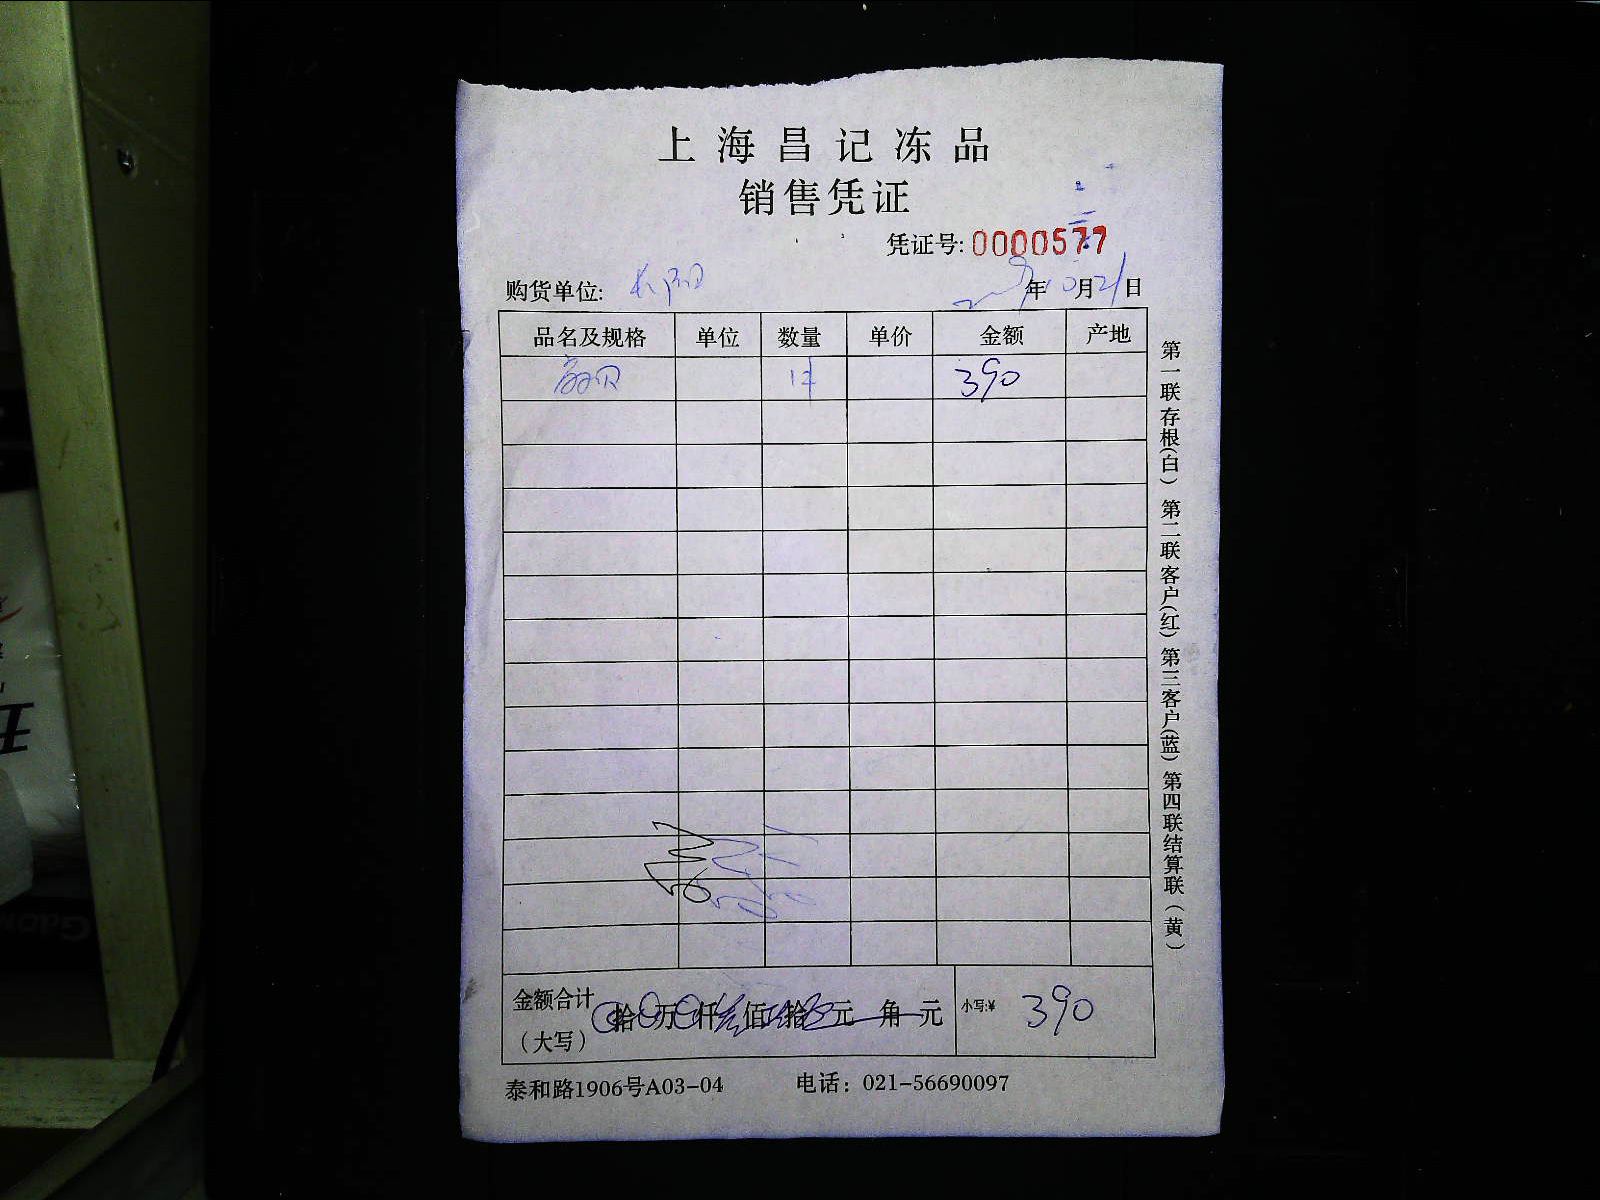 上海昌记冻品
销售凭证
凭证号: 0000577
购货单位: 年10月21日
品名及规格 单位 数量 单价 金额 产地
390
金额合计 拾 万 仟 佰 拾 元 角 元 小写:¥ 390
(大写)
泰和路1906号A03-04 电话: 021-56690097
第一联存根(白) 第二联客户(红) 第三客户(蓝) 第四联结算联(黄)